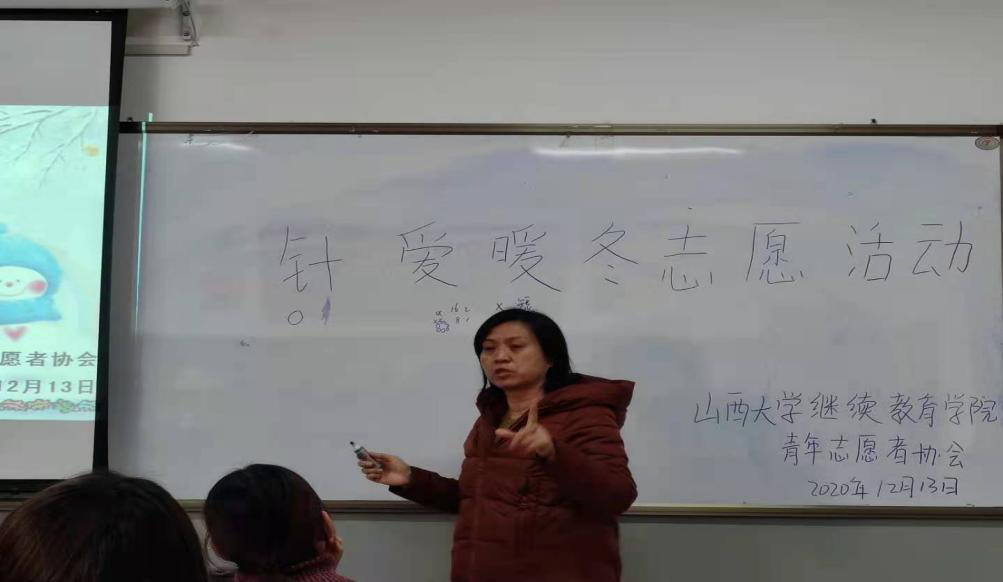 针爱暖冬志愿活动
山西大学继续教育学院
青年志愿者协会
2020年12月13日
愿者协会
12月13日